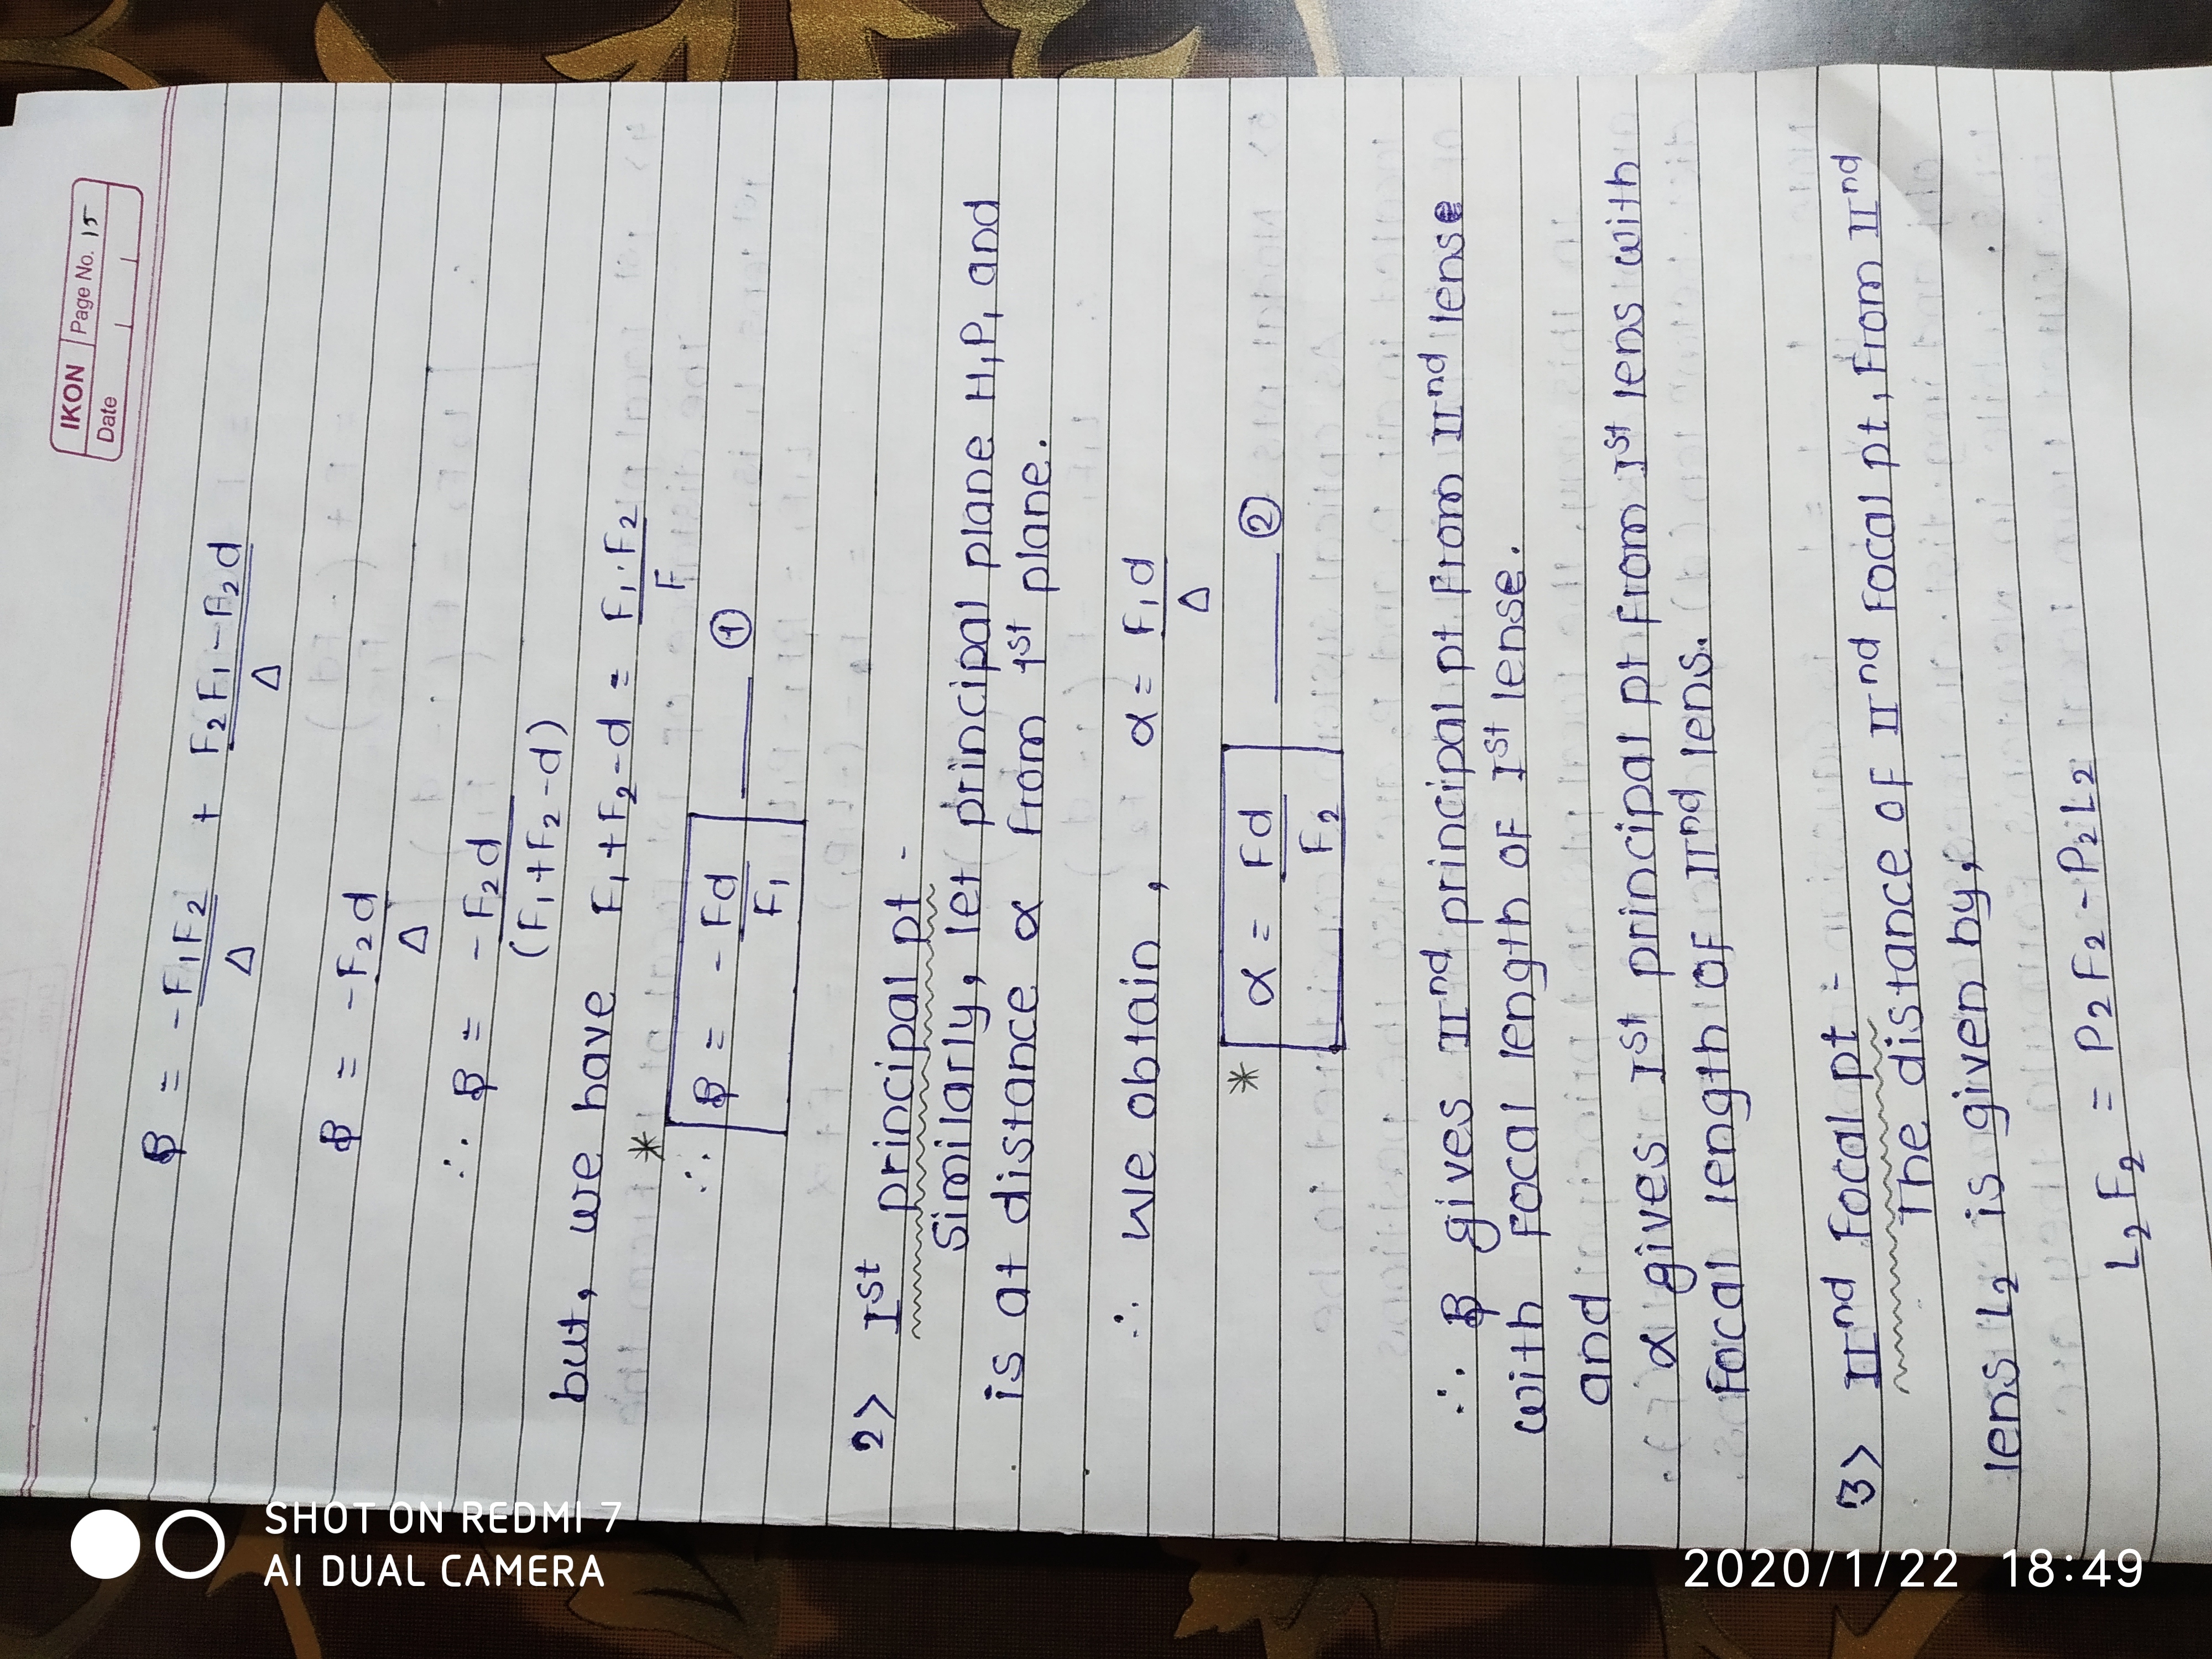 IKON Page No. 15
Date
β = -F₁F₂/Δ + F₂F₁-F₂d/Δ
β = -F₂d/Δ
∴ β = -F₂d/(F₁+F₂-d)
but, we have F₁+F₂-d = F₁.F₂/F
*
∴ β = -Fd/F₁ ——— ①
2> Ist principal pt -
Similarly, let principal plane H₁P₁ and
is at distance α from 1st plane.
∴ we obtain, α = F₁d/Δ
* α = Fd/F₂ ——— ②
∴ β gives IInd principal pt from IInd lense
with focal length of Ist lense.
and
α gives Ist principal pt from Ist lens with
focal length of IInd lens.
3> IInd focal pt :-
The distance of IInd focal pt, from IInd
lens L₂ is given by,
L₂F₂ = P₂F₂ - P₂L₂
SHOT ON REDMI 7
AI DUAL CAMERA
2020/1/22 18:49